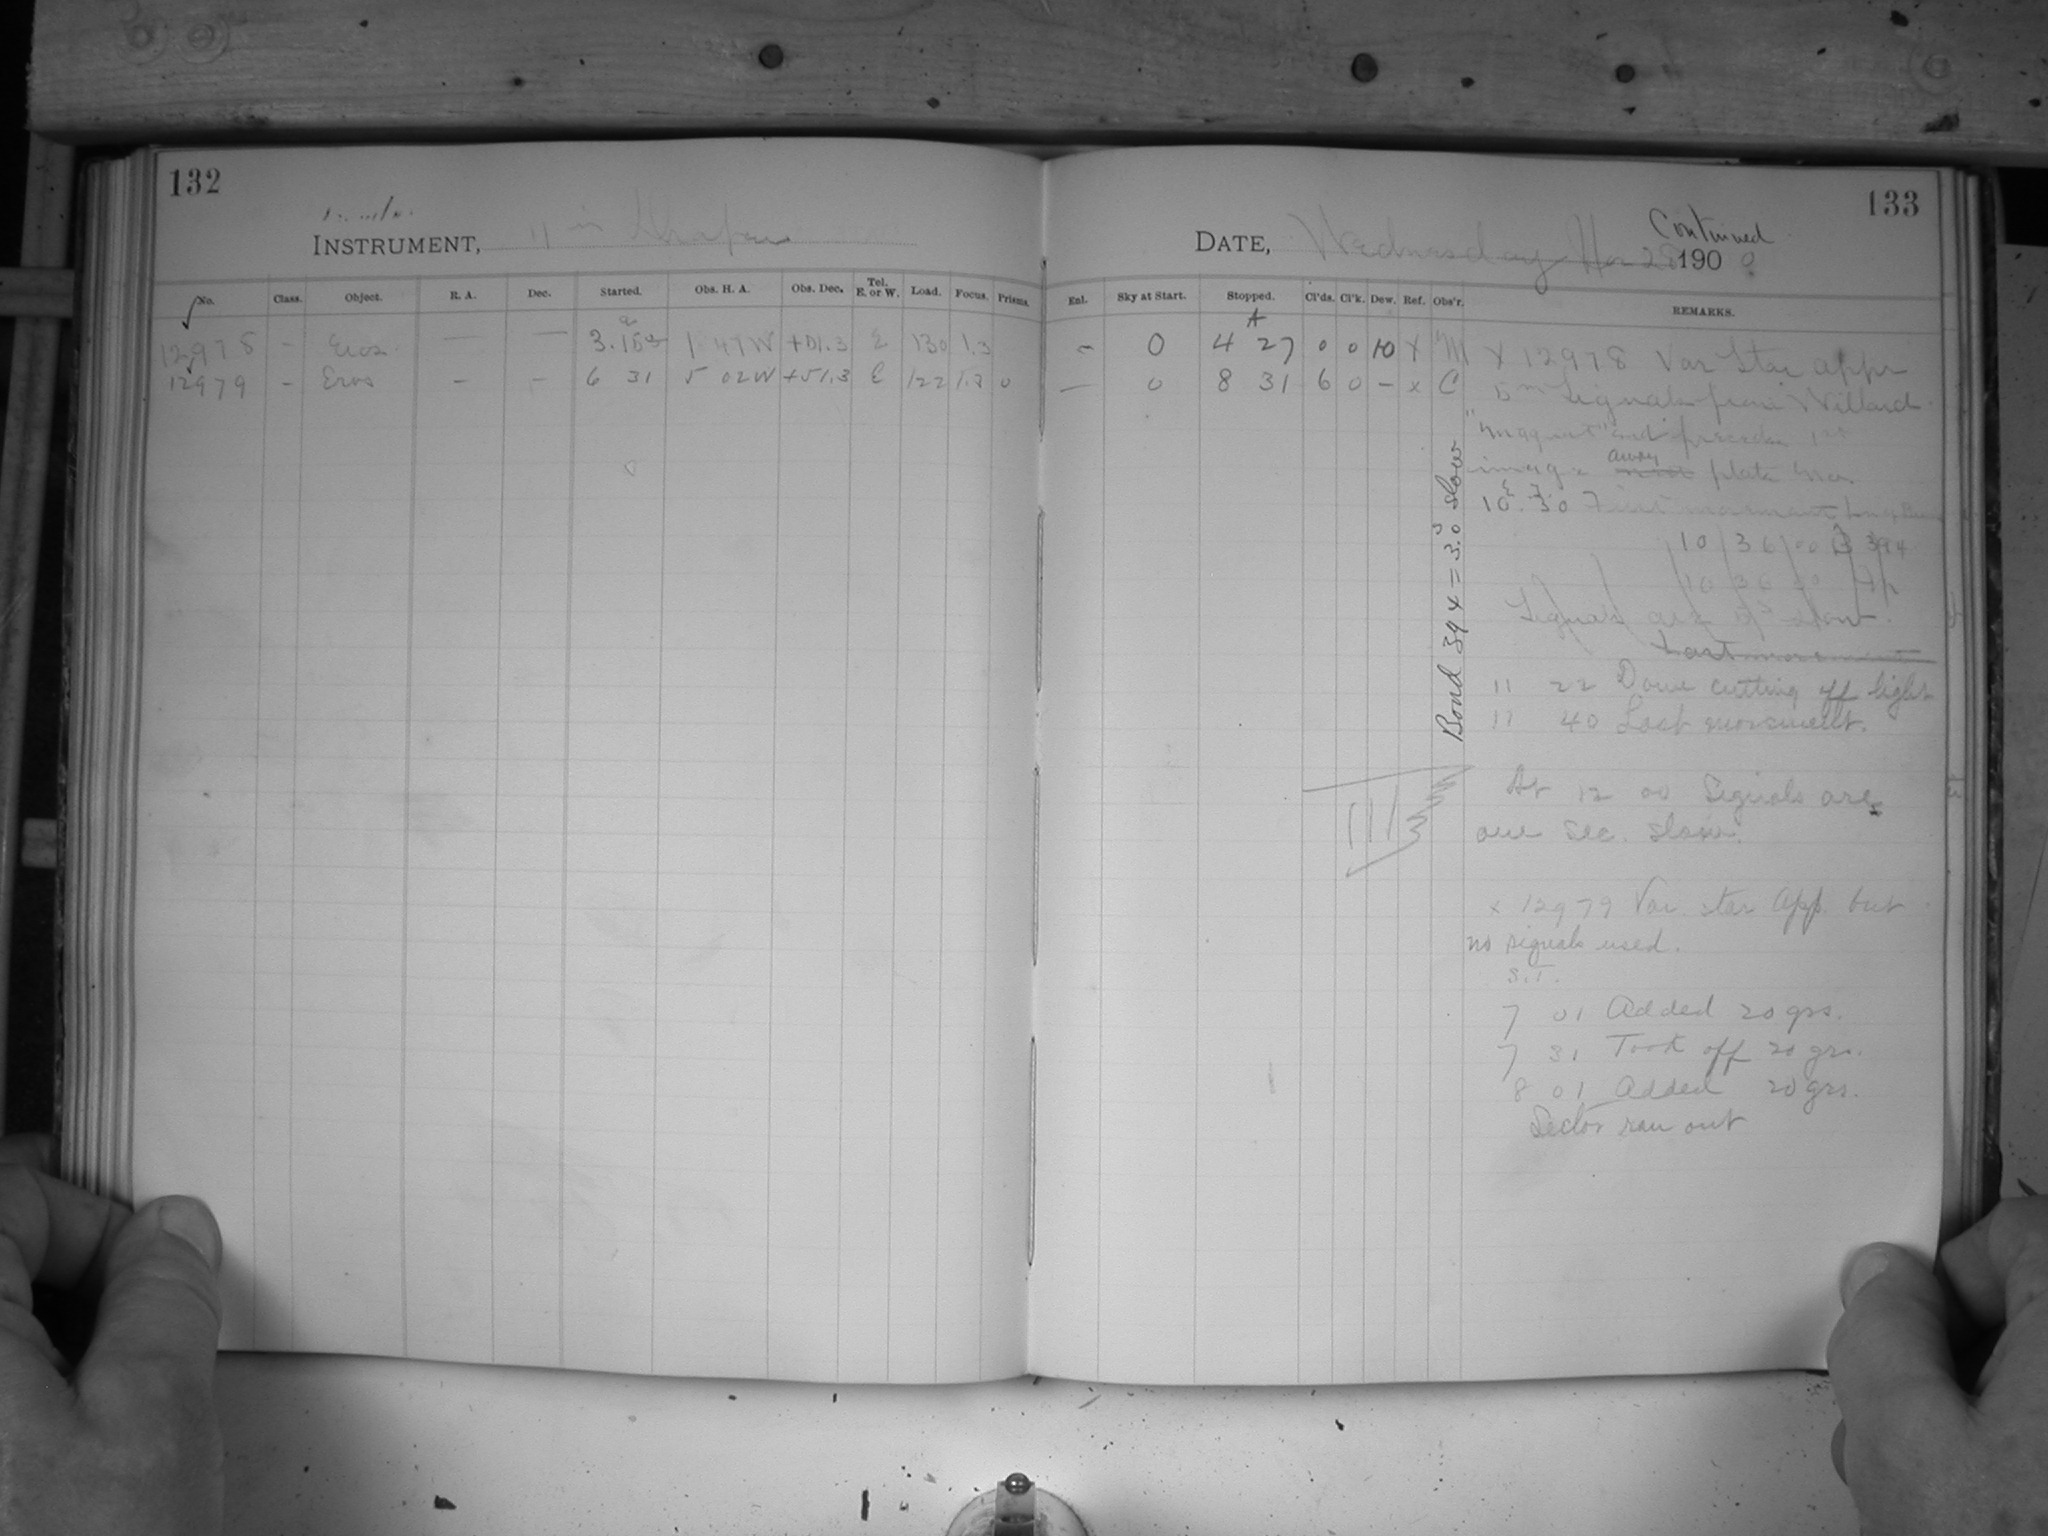 132
INSTRUMENT, 11 in Draper
No. Class. Object. R. A. Dec. Started. Obs. H. A. Obs. Dec. Tel. E. or W. Load. Focus. Prisms.
12978 - Eros — — 1 47 W +51.3 E 130 1.3
12979 - Eros - - 6 31 5 02 W +51.3 E 122 1.3 0
133
Continued
DATE, Wednesday Nov 28 1900
Enl. Sky at Start. Stopped. Cl'ds. Cl'k. Dew. Ref. Obs'r. REMARKS.
- 0 4 27 0 0 10 X M X 12978 Var Star appr
— 0 8 31 6 0 - x C Signals from Willard
"magnet" and
image away plate
10 30 First movement
10 36 00 B 394
10 36 00
Signals are slow
Last movement
11 22 Dome cutting off light
11 40 Last movement.
Bond 394 = 3.0s slow
At 12 00 Signals are
one sec. slow.
III
x 12979 Var. star App. but
no signals used.
S.T.
7 01 Added 20 grs.
7 31 Took off 20 grs.
8 01 Added 20 grs.
Sector ran out